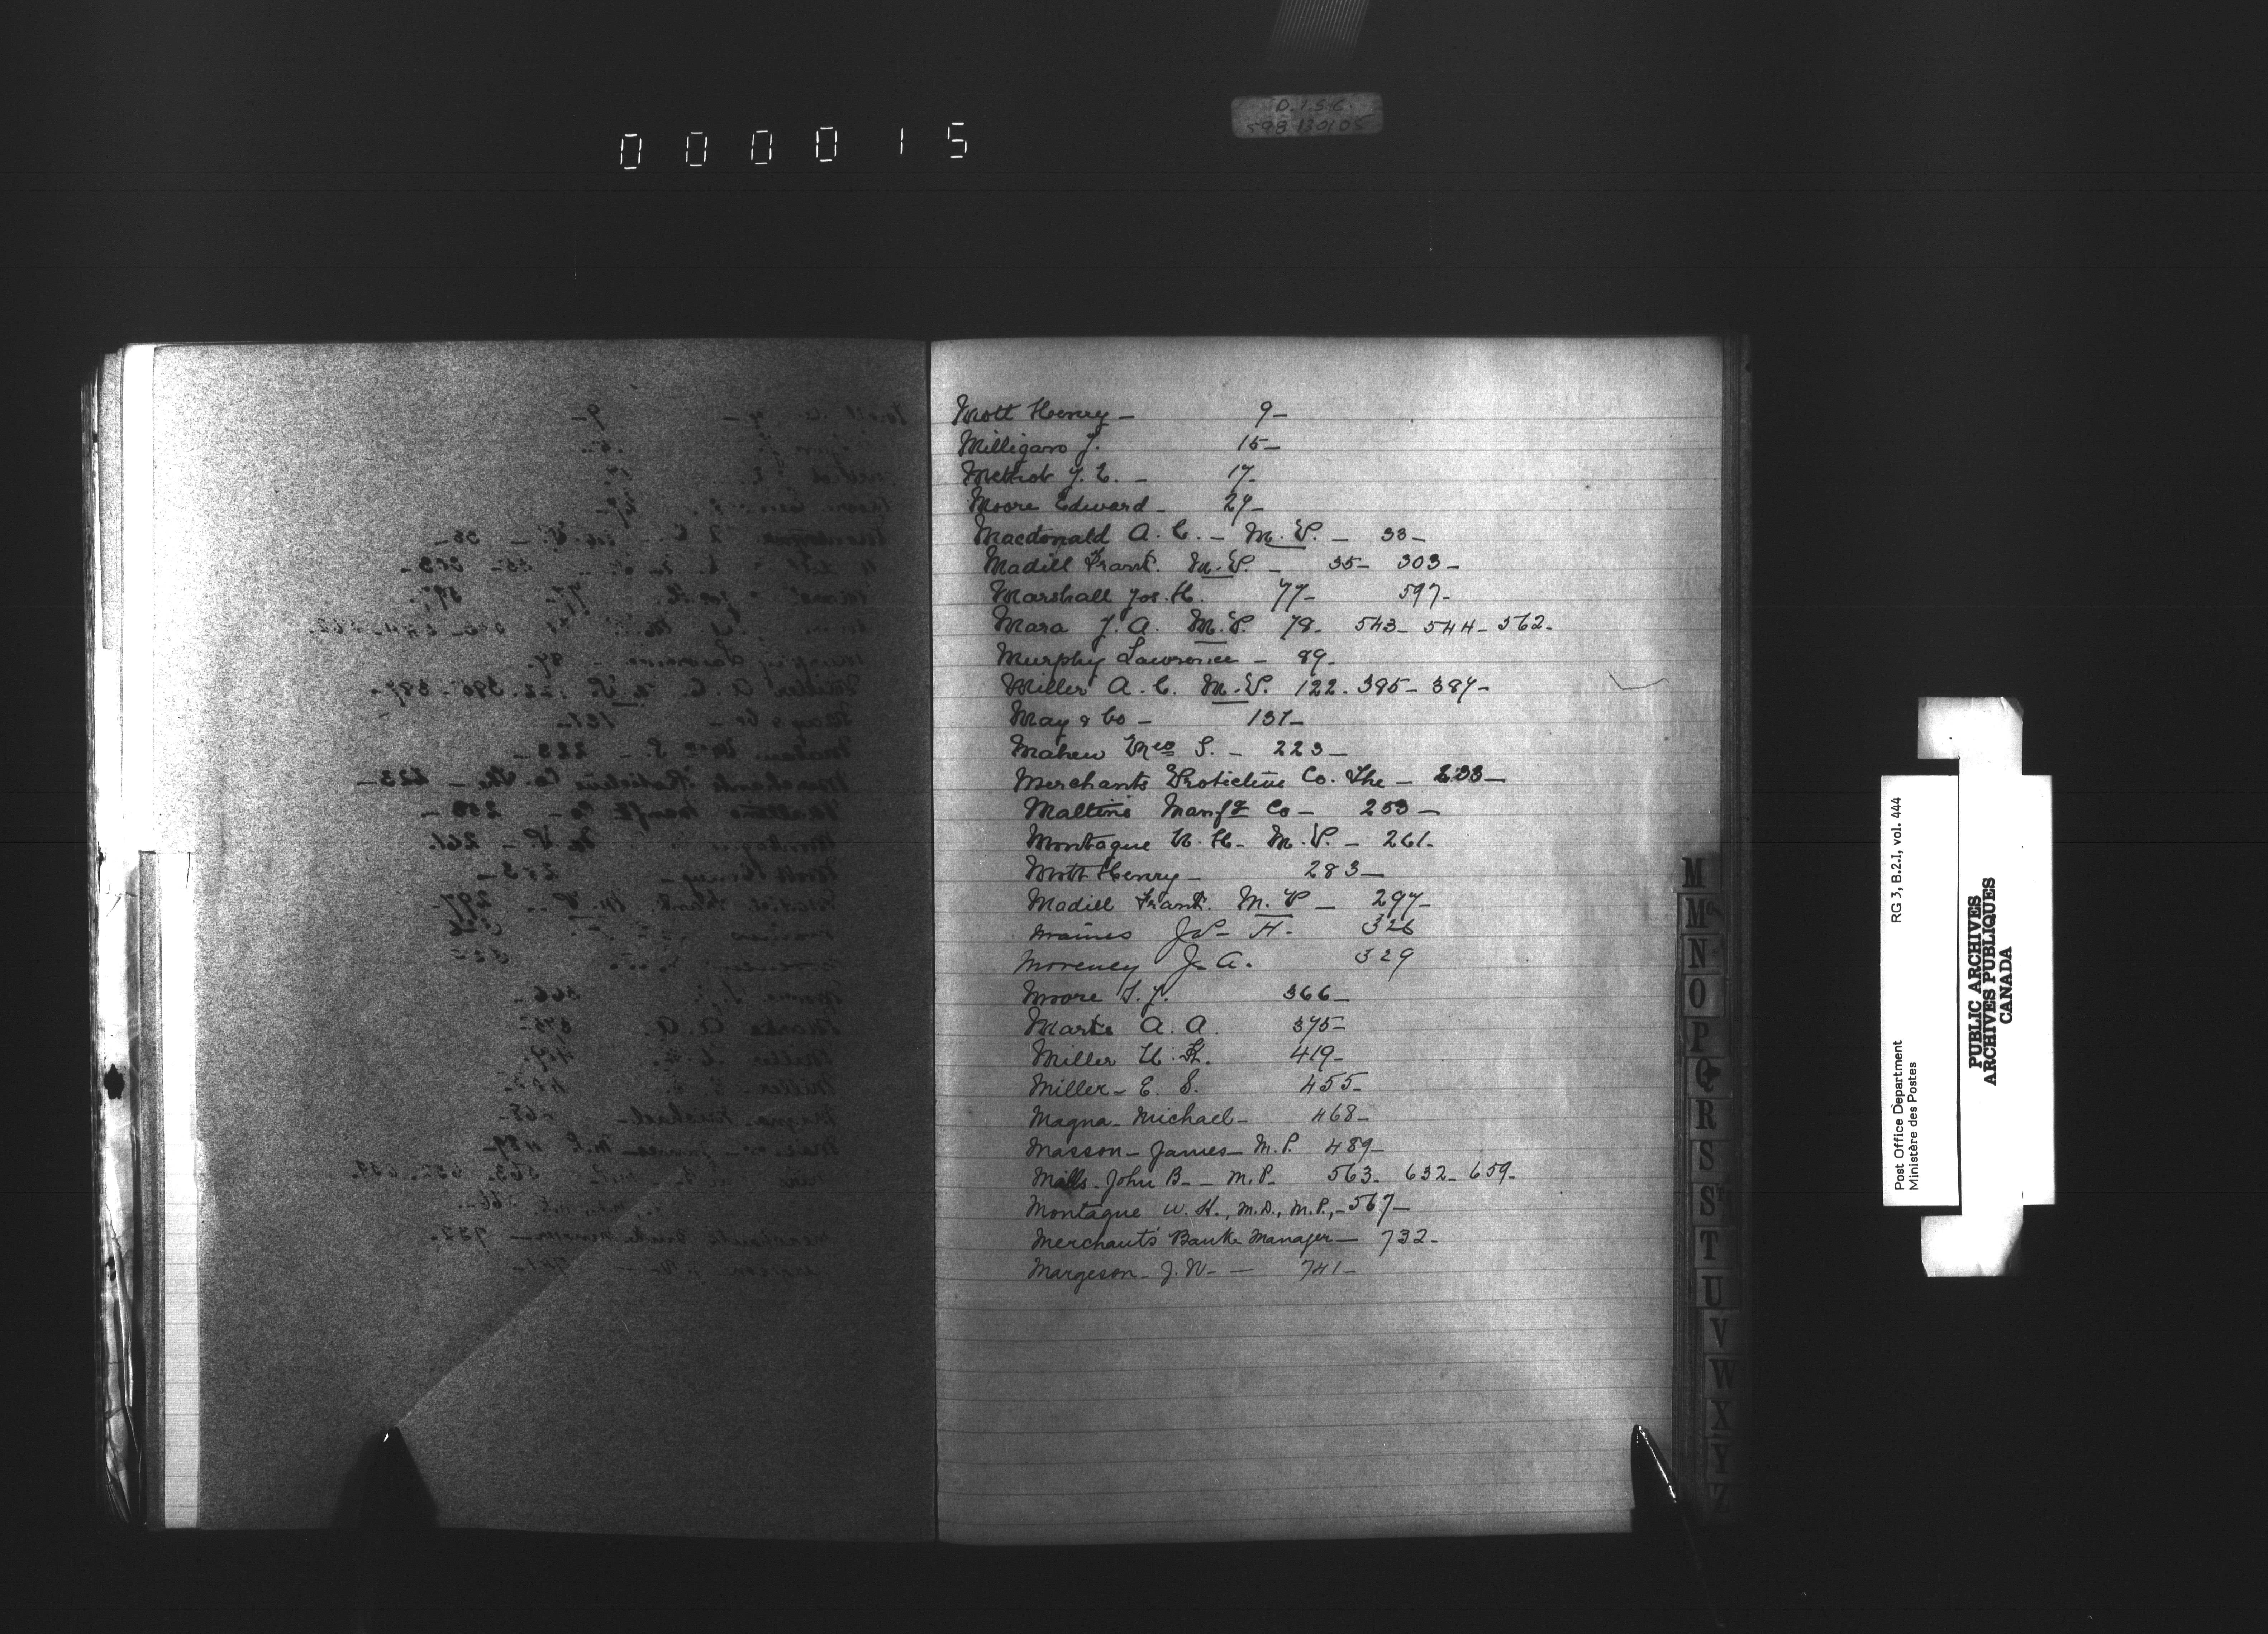 000015
D.I.S.C.
598 130105
Mott Henry - 9-
Milligan J. 15-
Methot J. E. - 17-
Moore Edward - 27-
Macdonald A. C. - M.P. - 33-
Madill Frank. M.P. - 35- 303-
Marshall Jos. H. 77- 597-
Mara J. A. M.P. 79- 543- 544- 562-
Murphy Lawrence - 89-
Miller A. C. M.P. 122. 385- 387-
May & Co - 137-
Mahew Mrs S. - 223-
Merchants Protective Co. The - 233-
Maltine Manfg Co - 253-
Montague W. H. M.P. - 261-
Mott Henry - 283-
Madill Frank. M.P - 297-
Maines H. 326
Moreney J. A. 329
Moore S. J. 366-
Marks A. A. 375-
Miller 419-
Miller - E. S. 455-
Magna - Michael - 468-
Masson - James - M.P. 489-
Mills - John B - - M.P. 563- 632- 659-
Montague W. H., M.D., M.P., - 567-
Merchants' Bank Manager - 732-
Margeson - J. W- - 741-
M
Mc
N
O
P
Q
R
S
St
T
U
V
W
X
Y
Z
Post Office Department
Ministère des Postes
RG 3, B.2.I, vol. 444
PUBLIC ARCHIVES
ARCHIVES PUBLIQUES
CANADA